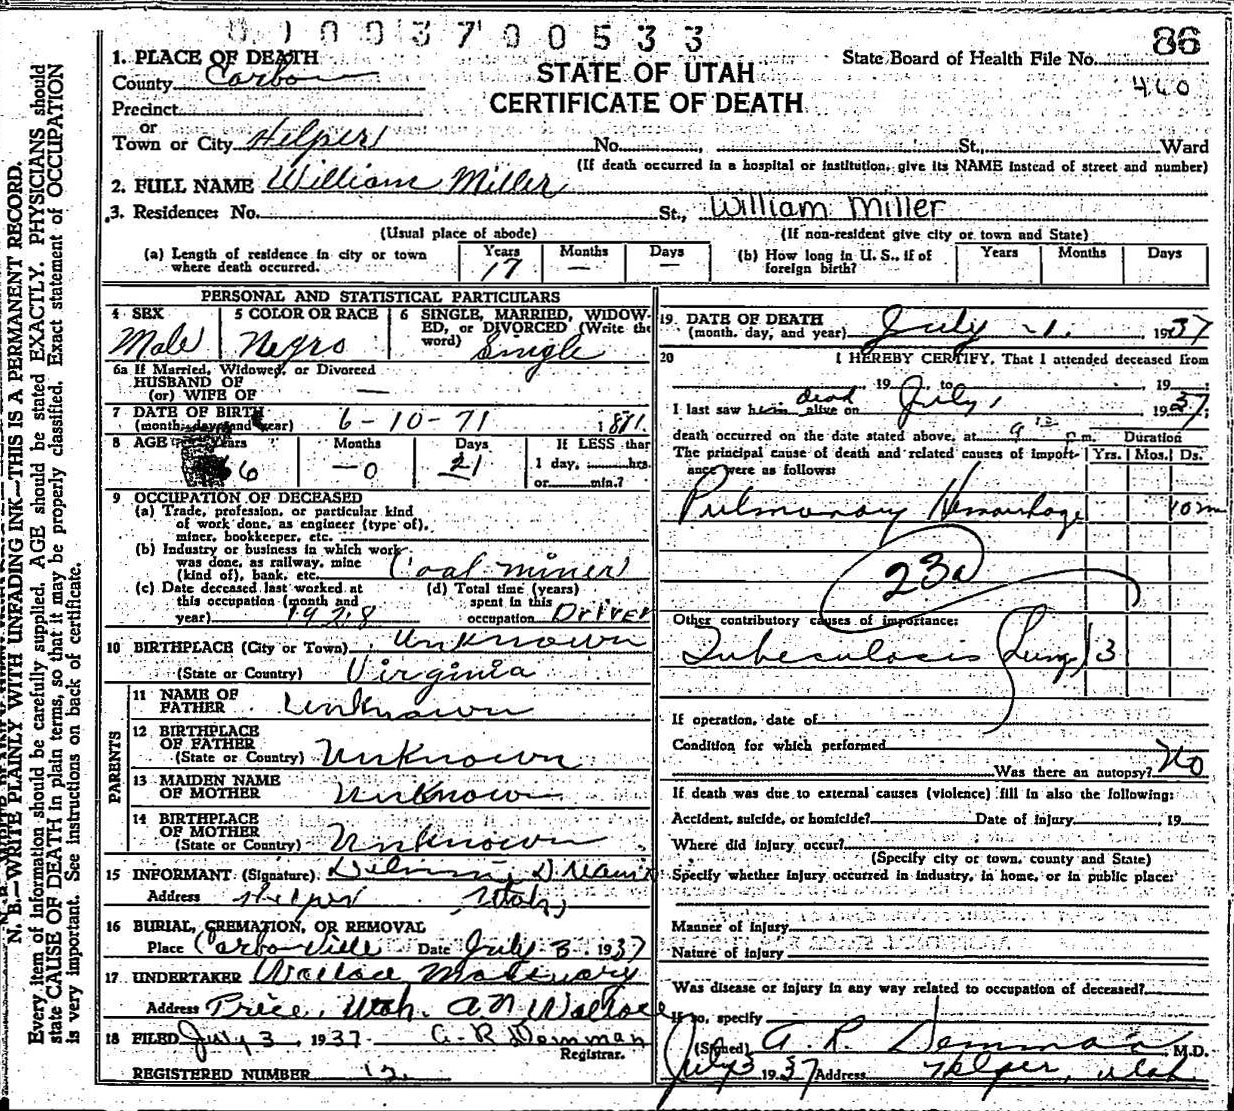 0100370053 3
86
1. PLACE OF DEATH
State Board of Health File No.
County Carbon
STATE OF UTAH
460
CERTIFICATE OF DEATH
Precinct
or
Town or City Helper No. St., Ward
(If death occurred in a hospital or institution, give its NAME instead of street and number)
2. FULL NAME William Miller
3. Residence: No. St., William Miller
(Usual place of abode) (If non-resident give city or town and State)
(a) Length of residence in city or town where death occurred. Years 17 Months — Days —
(b) How long in U. S., if of foreign birth? Years Months Days
PERSONAL AND STATISTICAL PARTICULARS
4 SEX Male
5 COLOR OR RACE Negro
6 SINGLE, MARRIED, WIDOWED, or DIVORCED (Write the word) Single
6a If Married, Widowed, or Divorced
HUSBAND OF
(or) WIFE OF —
7 DATE OF BIRTH
(month, day, and year) 6-10-71 1871.
8 AGE Years 66 Months —0 Days 21 If LESS than
1 day, hrs.
or min.?
9 OCCUPATION OF DECEASED
(a) Trade, profession, or particular kind
of work done, as engineer (type of),
miner, bookkeeper, etc.
(b) Industry or business in which work
was done, as railway, mine
(kind of), bank, etc. Coal miner
(c) Date deceased last worked at
this occupation (month and
year) 1928
(d) Total time (years)
spent in this
occupation Driver
10 BIRTHPLACE (City or Town) Unknown
(State or Country) Virginia
PARENTS
11 NAME OF
FATHER Unknown
12 BIRTHPLACE
OF FATHER
(State or Country) Unknown
13 MAIDEN NAME
OF MOTHER Unknown
14 BIRTHPLACE
OF MOTHER
(State or Country) Unknown
15 INFORMANT (Signature)
Address Helper, Utah
16 BURIAL, CREMATION, OR REMOVAL
Place Carbonville Date July 3 1937
17 UNDERTAKER Wallace Mortuary
Address Price, Utah. A N Wallace
18 FILED July 3, 1937 A. R Demman
Registrar.
REGISTERED NUMBER 12
19 DATE OF DEATH
(month, day, and year) July -1. 1937
20 I HEREBY CERTIFY, That I attended deceased from
, 19 , to , 19 ;
I last saw him dead alive on July 1 1937;
death occurred on the date stated above, at 9 p.m. Duration
The principal cause of death and related causes of importance were as follows: Yrs. Mos. Ds.
Pulmonary Hemorrhage 10 m
23a
Other contributory causes of importance:
Tubeculosis (Lung) 3
If operation, date of
Condition for which performed
Was there an autopsy? No
If death was due to external causes (violence) fill in also the following:
Accident, suicide, or homicide? Date of Injury 19
Where did injury occur?
(Specify city or town, county and State)
Specify whether injury occurred in industry, in home, or in public place:
Manner of Injury
Nature of Injury
Was disease or injury in any way related to occupation of deceased?
If so, specify
(Signed) A. R. Demman M.D.
July 3 1937 Address Helper, Utah
N. B.—WRITE PLAINLY WITH UNFADING INK—THIS IS A PERMANENT RECORD.
Every item of information should be carefully supplied. AGE should be stated EXACTLY. PHYSICIANS should
state CAUSE OF DEATH in plain terms, so that it may be properly classified. Exact statement of OCCUPATION
is very important. See instructions on back of certificate.